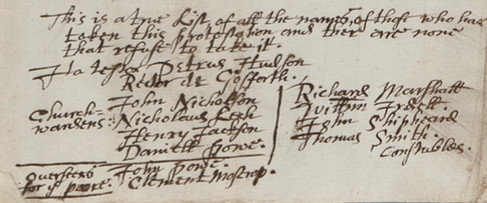 This is a true List of all the names, of those who have
taken this protestation and ther are none
that refuse to take it.
Ita testor Petrus Hudson
Rector de Gosforth.
Church-
wardens:
John Nicholson
Nicholaus Leech
Henry Jackson
Daniell Powe.
Richard Marshall
John Shipheard
Thomas Smith.
Constables.
Overseers
for ye poore.
John Powe.
Clement Mostrop.